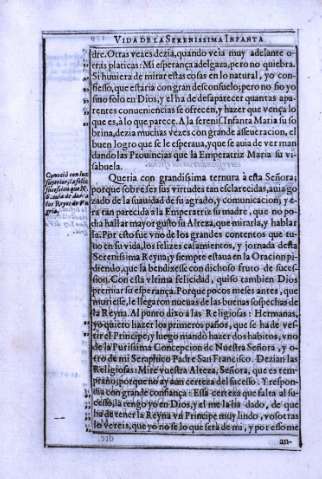 VIDA DE LA SERENISSIMA INFANTA
dre. Otras vezes dezia, quando veia muy adelante o-
tras platicas: Mi esperança adelgaza, pero no quiebra.
Si huuiera de mirar estas cosas en lo natural, yo con-
fiesso, que estaria con gran desconsuelo; pero no fio yo
sino solo en Dios, y el ha de desaparecer quantas apa-
rentes conueniencias se ofrecen, y hazer que vença lo
que es, à lo que parece. A la sereniss. Infanta Maria su so
brina, dezia muchas vezes con grande asseueracion, el
buen logro que se le esperaua, y que se auia de ver man
dando las Prouincias que la Emperatriz Maria su vi-
sabuela.
Queria con grandissima ternura à esta Señora;
porque sobre ser sus virtudes tan esclarecidas, auia go
zado de la suauidad de su agrado, y comunicacion; y e-
ra tan parecida a la Emperatriz su madre, que no po-
dia hallar mayor gusto su Alteza, que mirarla, y hablar
la. Por esto fue vno de los grandes contentos que tu-
uo en su vida, los felizes casamientos, y jornada desta
Serenissima Reyna; y siempre estaua en la Oracion pi-
diendo, que la bendixesse con dichoso fruto de suces-
sion. Con esta vltima felicidad, quiso tambien Dios
premiar su esperança. Porque pocos meses antes, que
muriesse, le llegaron nueuas de las buenas sospechas de
la Reyna. Al punto dixo à las Religiosas: Hermanas,
yo quiero hazer los primeros paños, que se ha de ves-
tir el Principe; y luego mando hazer dos habitos, vno
de la Purissima Concepcion de Nuestra Señora, y o-
tro de mi Seraphico Padre San Francisco. Dezian las
Religiosas: Mire vuestra Alteza, Señora, que es tem-
prano; porque no ay aun certeza del sucesso. Y respon-
dia con grande confiança: Essa certeza que falta al su-
cesso, la tengo yo en Dios, y el me la ha dado, de que
ha de tener la Reyna vn Principe muy lindo, vosotras
lo vereis, que yo no se lo que será de mi, y por esso me
an-